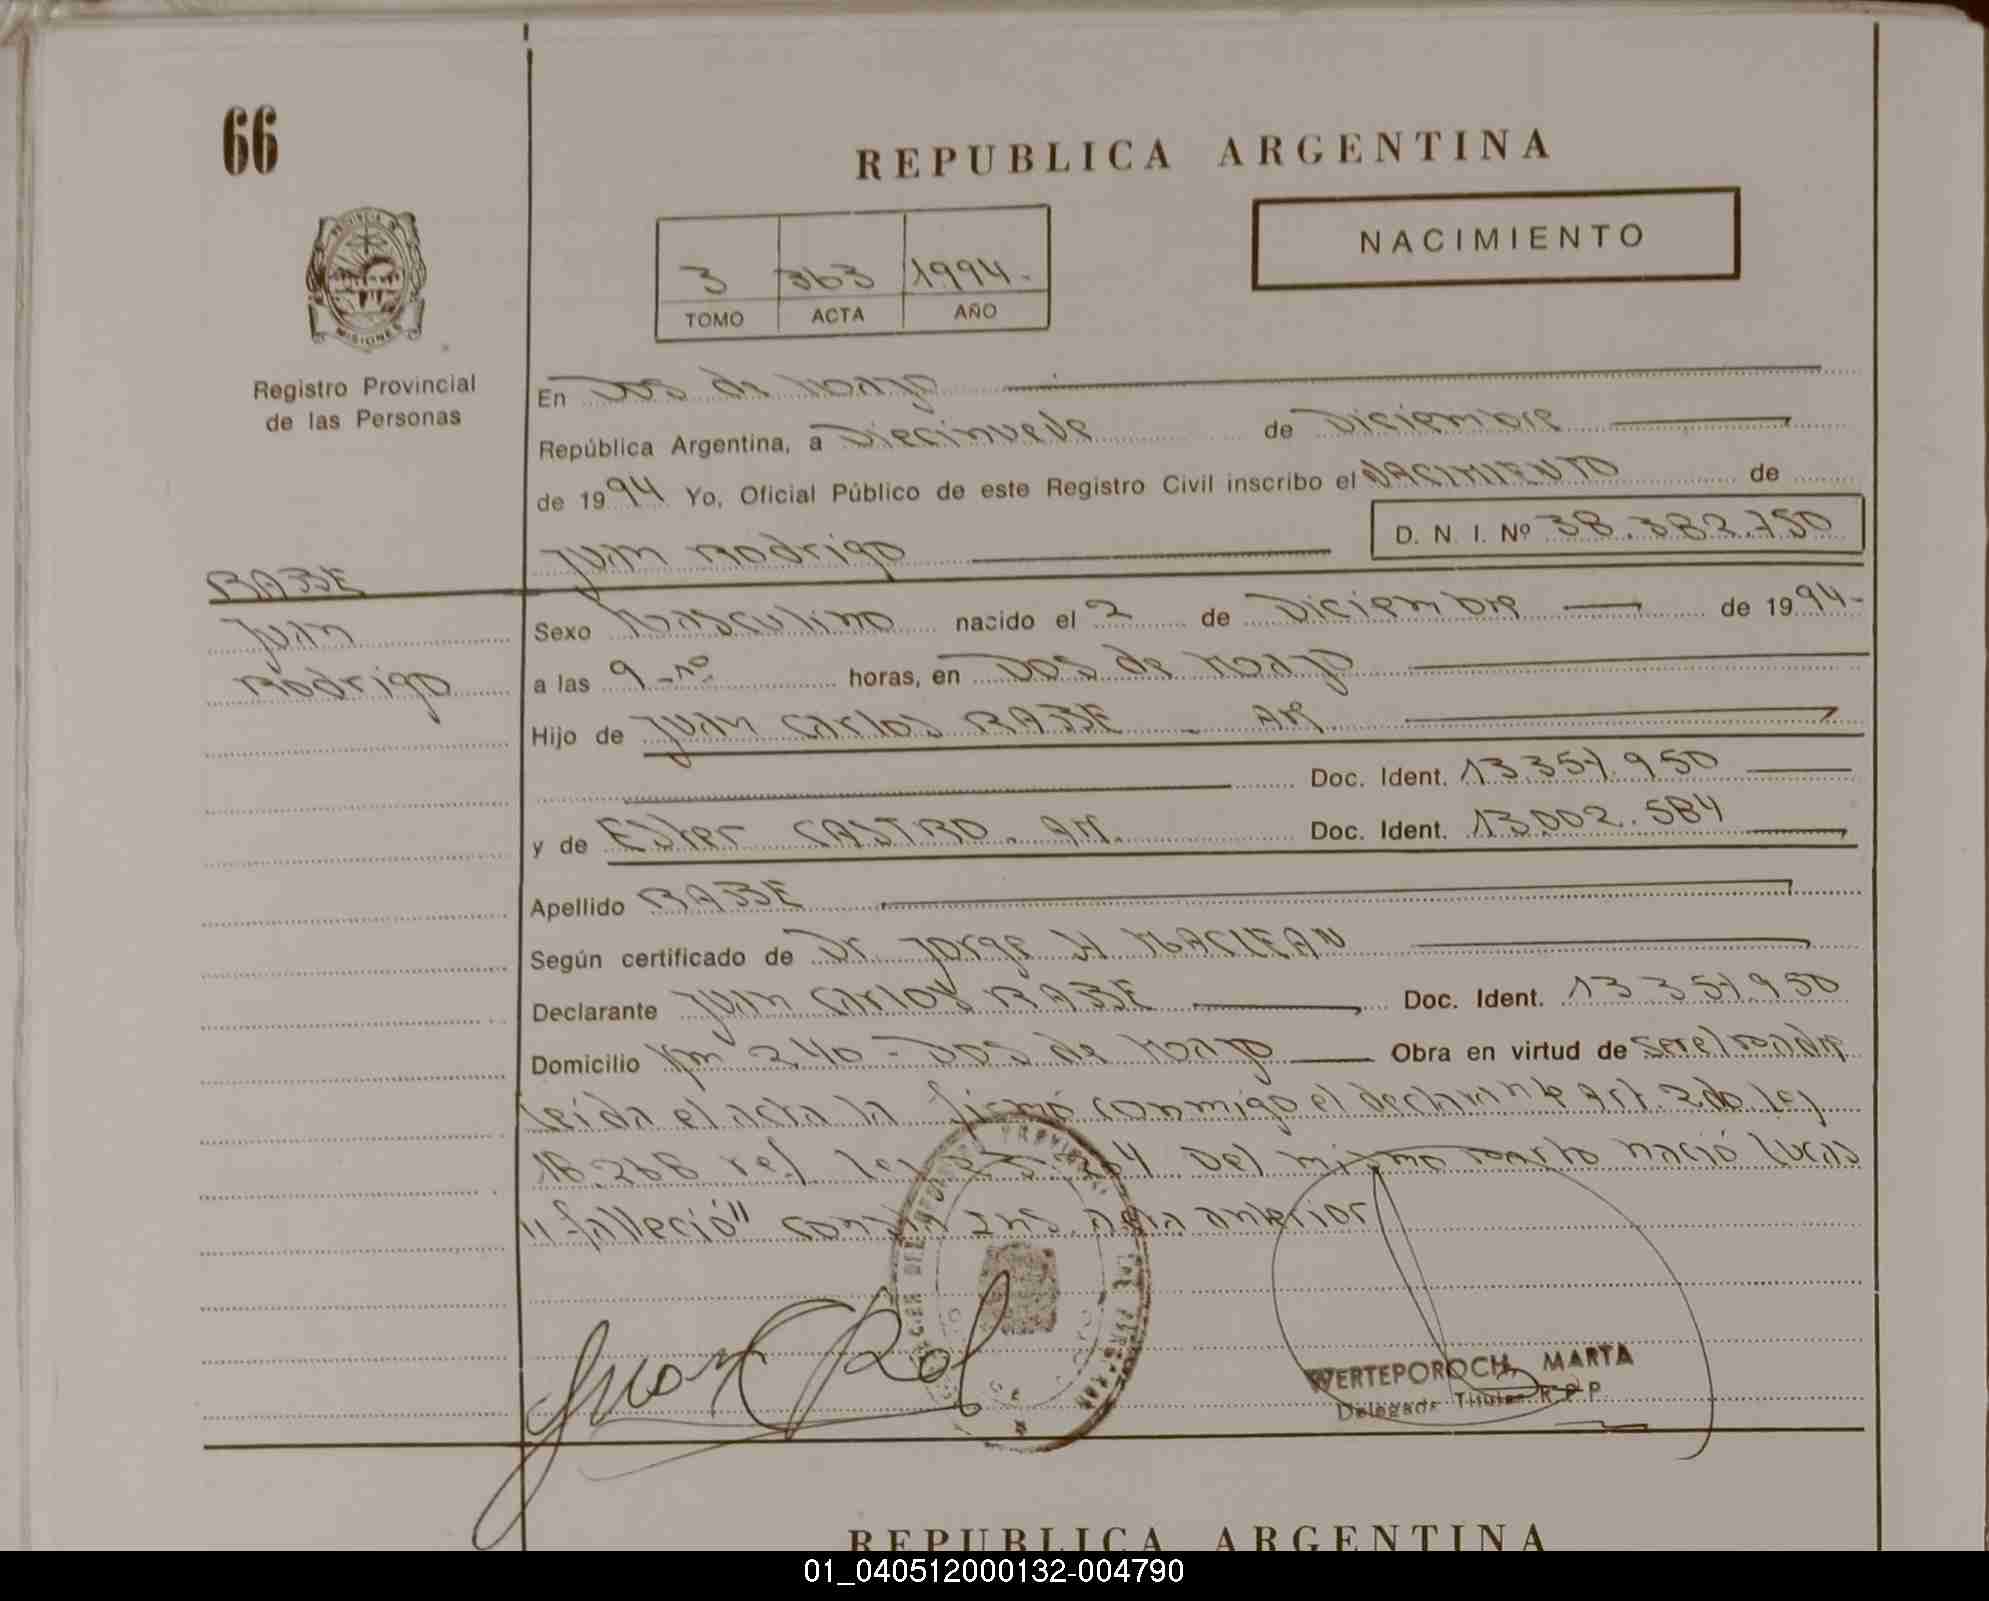 66
REPUBLICA ARGENTINA
NACIMIENTO
3 363 1994.-
TOMO ACTA AÑO
MISIONES
Registro Provincial
de las Personas
En Dos de Mayo
República Argentina, a Diecinueve de Diciembre
de 1994 Yo, Oficial Público de este Registro Civil inscribo el NACIMIENTO de
Juan Rodrigo D. N. I. Nº 38.382.750
RABE
Juan
Rodrigo
Sexo Masculino nacido el 2 de Diciembre de 1994-
a las 9 horas, en Dos de Mayo
Hijo de Juan Carlos RABE Ar
Doc. Ident. 13.357.950
y de Ester CASTRO. Ar. Doc. Ident. 13.002.584
Apellido RABE
Según certificado de Dr. Jorge W MACLEAN
Declarante Juan Carlos RABE Doc. Ident. 13.357.950
Domicilio Km 240 - Dos de Mayo Obra en virtud de ser el padre
leída el acta la firmó conmigo el declarante Art. 2do ley
18.268 ref. ley Del mismo parto nació Lucas
"falleció" consta ins. acta anterior
WERTEPOROCH, MARTA
Delegada Titular R.P.P.
REPUBLICA ARGENTINA
01_040512000132-004790